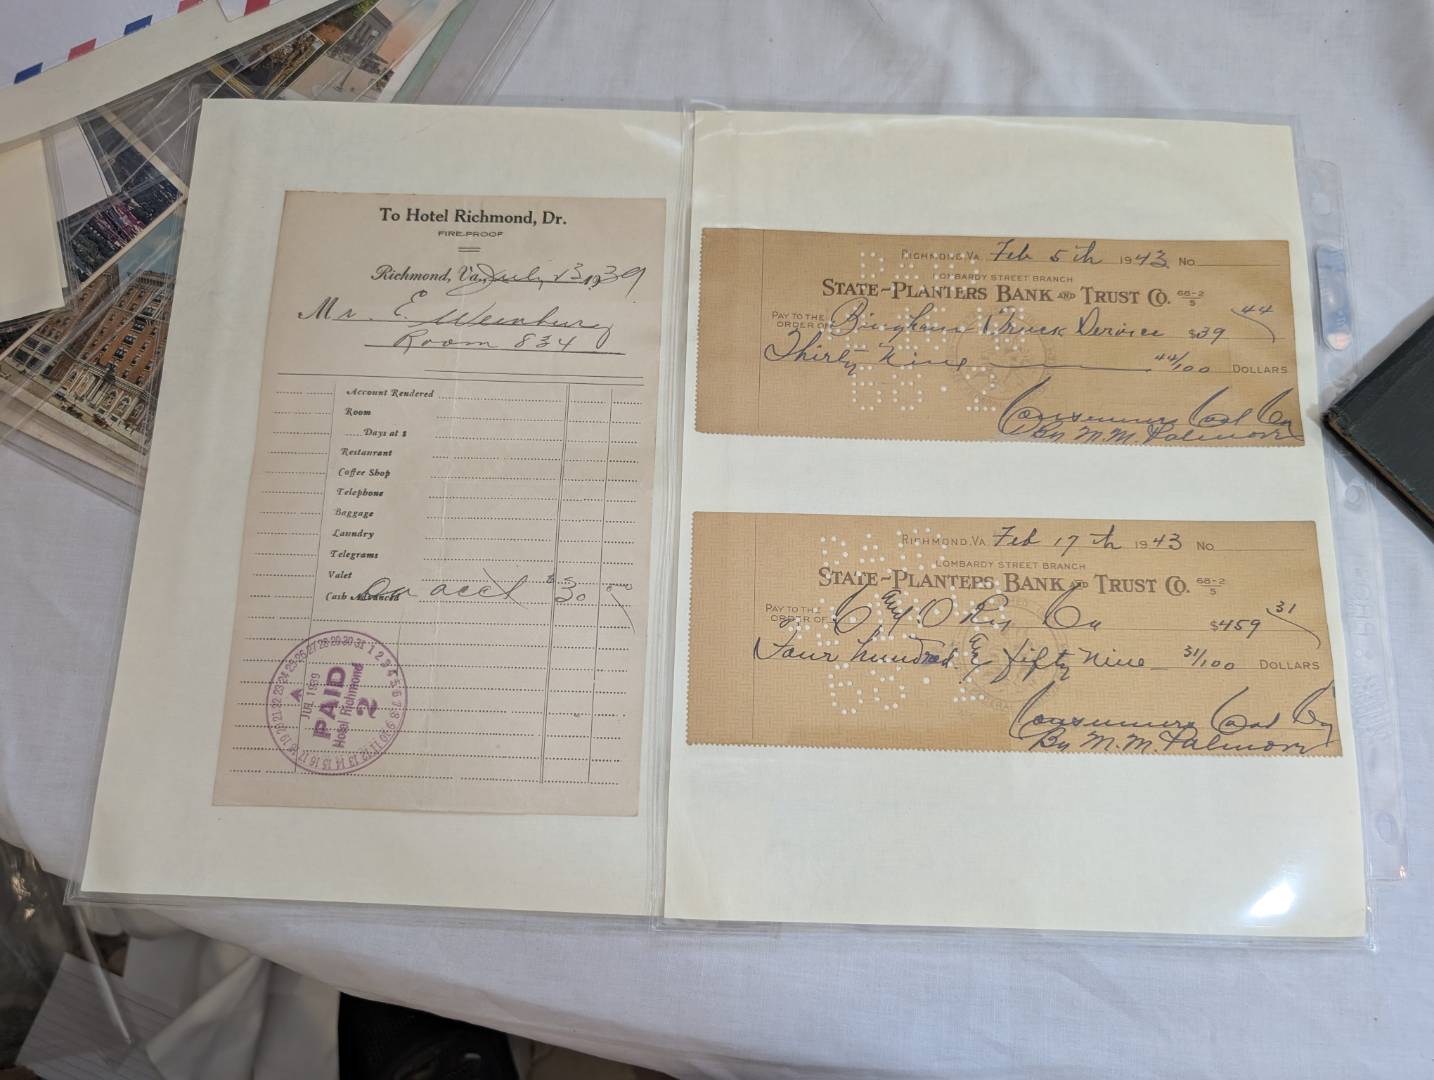 To Hotel Richmond, Dr.
FIRE-PROOF
Richmond, Va., July 23 1939
Mr. E. Weinburg
Room 834
Account Rendered
Room
Days at $
Restaurant
Coffee Shop
Telephone
Baggage
Laundry
Telegrams
Valet
Cash Advanced On acct $30 00
26 27 28 29 30 31 1 2 3 4 5
JUL 1939
PAID
Hotel Richmond
2
RICHMOND, VA. Feb 5th 1943 No
LOMBARDY STREET BRANCH
STATE-PLANTERS BANK AND TRUST CO. 68-2/5
PAY TO THE ORDER OF Bingham Truck Service $39 44
Thirty Nine 44/100 DOLLARS
Consumers Coal Co
By M. M. Palmore
RICHMOND, VA. Feb 17th 1943 No
LOMBARDY STREET BRANCH
STATE-PLANTERS BANK AND TRUST CO. 68-2/5
PAY TO THE ORDER OF C and O Ry Co $459 31
Four hundred & fifty Nine 31/100 DOLLARS
Consumers Coal Co
By M. M. Palmore